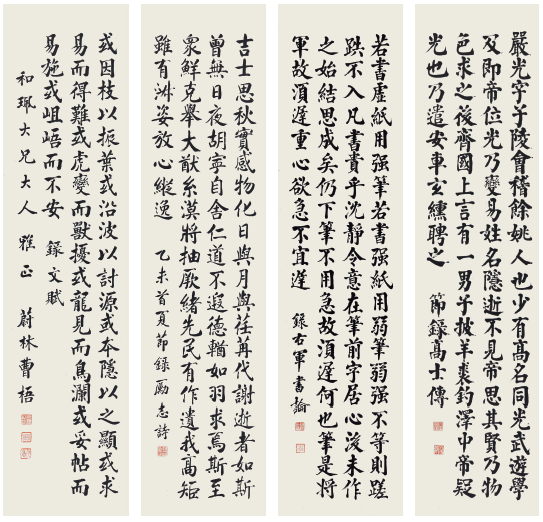 嚴光字子陵會稽餘姚人也少有高名同光武遊學
及即帝位光乃變易姓名隱逝不見帝思其賢乃物
色求之後齊國上言有一男子披羊裘釣澤中帝疑
光也乃遣安車玄纁聘之 節錄高士傳
若書虛紙用强筆若書强紙用弱筆弱强不等則蹉
跌不入凡書貴乎沈靜令意在筆前字居心後未作
之始結思成矣仍下筆不用急故須遲何也筆是將
軍故須遲重心欲急不宜遲 錄右軍書論
吉士思秋實感物化日與月與荏苒代謝逝者如斯
曾無日夜胡寧自舍仁道不遐德輶如羽求焉斯至
衆鮮克舉大猷玄漠將抽厥緒先民有作遺我高矩
雖有淑姿放心縱逸 乙未首夏節錄勵志詩
或因枝以振葉或沿波以討源或本隱以之顯或求
易而得難或虎變而獸擾或龍見而鳥瀾或妥帖而
易施或岨峿而不安 錄文賦
和珮大兄大人雅正 蔚林曹梧